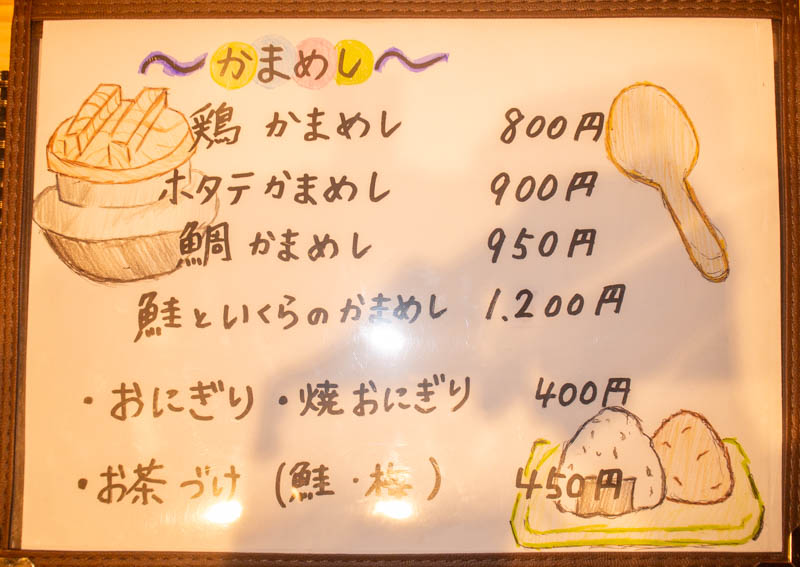 ～かまめし～
鶏 かまめし 800円
ホタテかまめし 900円
鯛かまめし 950円
鮭といくらのかまめし 1.200円
・おにぎり ・焼おにぎり 400円
・お茶づけ (鮭・梅) 450円